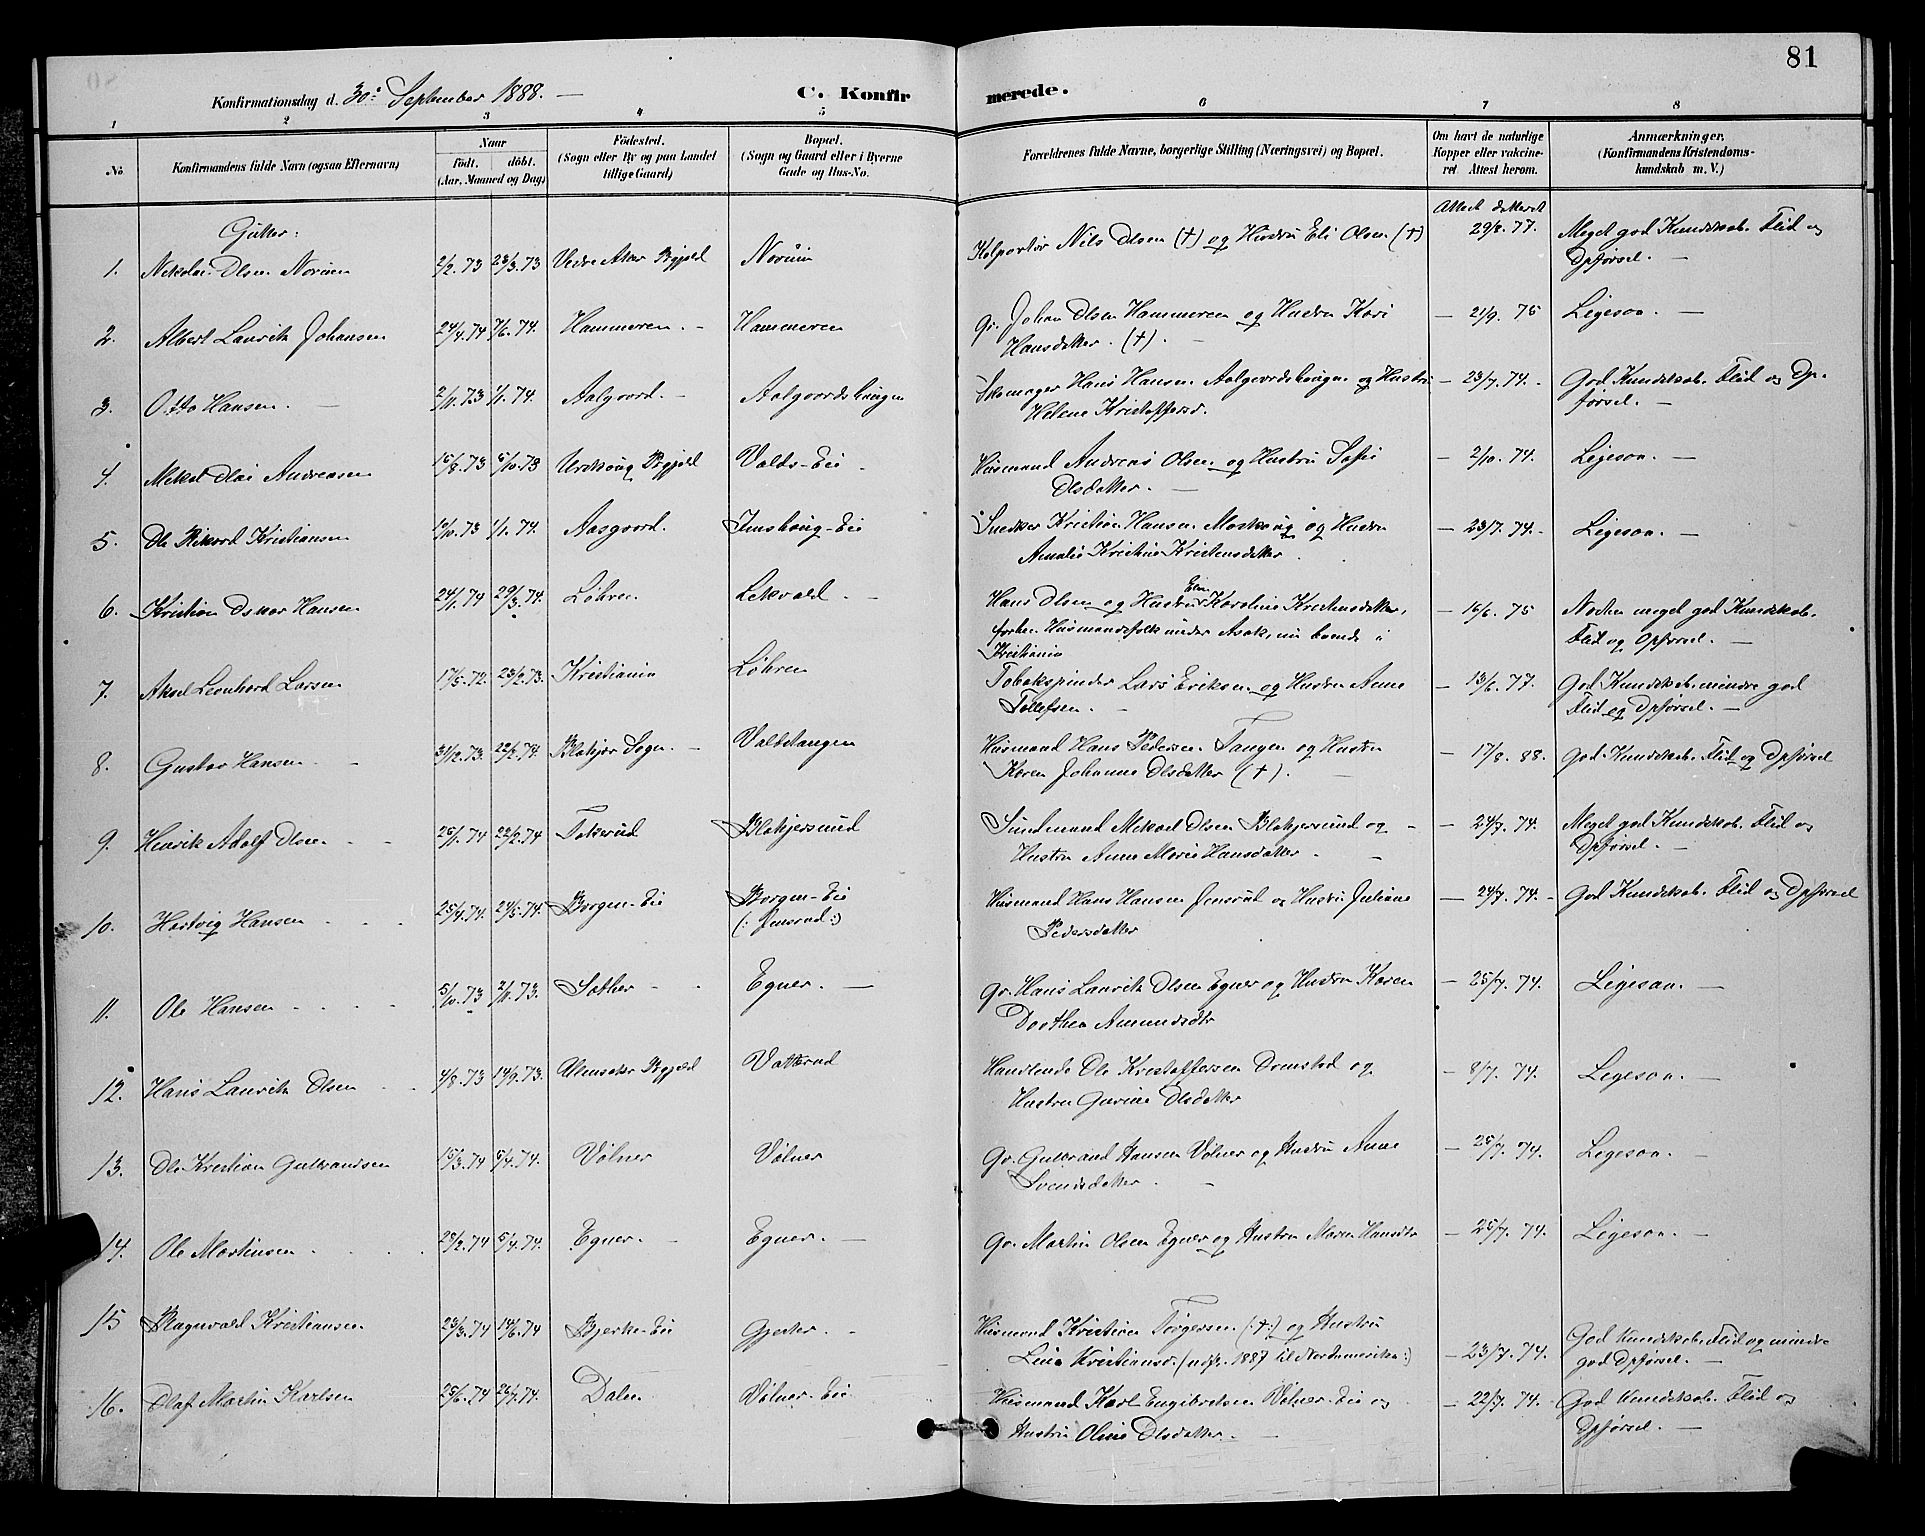 81
Konfirmationsdag d. 30te September 1888. —
C. Konfirmerede.
1 2 3 4 5 6 7 8
No
Konfirmandens fulde Navn (ogsaa Efternavn)
Naar
födt. döbt.
(Aar, Maaned og Dag)
Födested.
(Sogn eller By og paa Landet
tillige Gaard)
Bopæl.
(Sogn og Gaard eller i Byerne
Gade og Hus-No.
Forældrenes fulde Navne, borgerlige Stilling (Næringsvei) og Bopæl.
Om havt de naturlige
Kopper eller vakcine-
ret Attest herom.
Anmærkninger.
(Konfirmandens Kristendoms-
kundskab m. V.)
Gutter:
Attest dateret
1. Nikolai Olsen Norum 2/2.73 23/3.73 Vestre Aker Prgjeld Norum Kolportör Nils Olsen (†) og Hustru Eli Olsen (†) 29/8.77. Meget god Kundskab. Flid og
Opförsel. —
2. Albert Lauritz Johansen 24/4.74 7/6.74. Hammeren. — Hammeren Gr. Johan Olsen Hammeren og Hustru Kari — 21/9. 75 Ligesaa. —
Hansdatter. (†). —
3. Otto Hansen. — 2/11.73 1/1.74. Aalgaard. — Aalgaardshaugen Skomager Hans Hansen Aalgaardshaugen og Hustru — 23/7.74. — God Kundskab. Flid og Op-
Helene Kristoffersd. försel. —
4. Mikal Olai Andreasen 15/8.73 5/10.73 Urskoug Prgjeld Valds-Eie Husmand Andreas Olsen og Hustru Sofie — 2/10. 74. Ligesaa. —
Olsdatter. —
5. Ole Rikard Kristiansen 10/10.73 1/1.74. Aasgaard. Imshaug-Eie Snedker Kristian Hansen Moskoug og Hustru — 23/7. 74. — Ligesaa. —
Amalie Kristine Kristensdatter
6. Kristian Oskar Hansen 24/1.74 29/3.74. Löhren Lekvold — Hans Olsen og Hustru Karoline Kristensdatter, — 16/6. 75 Noksaa meget god Kundskab.
forhen Husmandsfolk under Asak, nu boende i Flid og Opförsel. —
Kristiania
7. Aksel Leonhard Larsen 17/5.72. 23/2.73. Kristiania Löhren Tobakspinder Lars Eriksen og Hustru Anne — 13/6. 77. God Kundskab. mindre god
Tollefsen. — Flid og Opförsel. —
8. Gustav Hansen — 31/12.73. 22/2.74. Blakjer Sogn. — Valstangen Husmand Hans Pedersen Tangen og Hustru — 17/8. 88. God Kundskab. Flid og Opförsel
Karen Johanne Olsdatter (†). —
9. Henrik Adolf Olsen 25/1.74 22/2.74 Tokerud Blakjersund Sundmand Mikael Olsen Blakjersund og — 24/7. 74. Meget god Kundskab. Flid og
Hustru Anne Marie Hansdatter. — Opförsel. —
10. Hartvig Hansen 25/4.74. 24/5.74. Borgen-Eie Borgen-Eie Husmand Hans Hansen Jensrud og Hustru Juliane — 24/7. 74. — God Kundskab. Flid og Opförsel
(: Jensrud :) Pedersdatter
11. Ole Hansen 5/10.73 2/11.73. Sother Egner. — Gr. Hans Lauritz Olsen Egner og Hustru Karen — 25/7. 74. Ligesaa. —
Dorthea Amundsdtr
12. Hans Lauritz Olsen 4/8.73 14/9.73. Ulensaker Prgjeld Valterud Handlende Ole Kristoffersen Onstad og — 8/7. 74. Ligesaa. —
Hustru Gurine Olsdatter
13. Ole Kristian Gulbrandsen 15/3.74 5/4.74. Völner Völner Gr. Gulbrand Hansen Völner og Hustru Anne — 25/7. 74. Ligesaa. —
Svendsdatter. —
14. Ole Martinsen 25/2.74 5/4.74. Egner. — Egner. — Gr. Martin Olsen Egner og Hustru Maren Hansdtr — 25/7. 74. Ligesaa. —
15 Ragnvald Kristiansen 23/3.74 14/6.74 Bjerke-Eie Gjester. — Husmand Kristian Torgersen (:†:) og Hustru — 23/7. 74. God Kundskab. Flid og mindre
Lina Kristiansd. (: udfl. 1887 til Nordamerika :) god Opförsel. —
16. Olaf Martin Karlsen 25/6.74 26/7.74. Dalen Völner-Eie Husmand Karl Engebretsen Völner-Eie og — 22/7. 74. God Kundskab. Flid og
Hustru Oline Olsdatter. — Opförsel. —